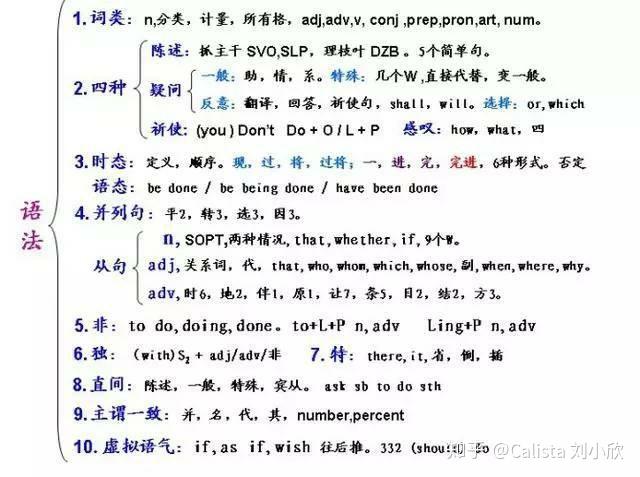 语法
1.词类：n,分类，计量，所有格，adj,adv,v, conj ,prep,pron,art, num。
2.四种
陈述：抓主干 SVO,SLP，理枝叶 DZB 。5个简单句。
疑问
一般：助，情，系。特殊：几个W,直接代替，变一般。
反意：翻译，回答，祈使句，shall，will。选择：or,which
祈使：(you ) Don't Do + O / L + P 感叹：how，what，四
3.时态：定义，顺序。现，过，将，过将；一，进，完，完进，6种形式。否定
语态：be done / be being done / have been done
4.并列句：平2，转3，选3，因3。
从句
n, SOPT,两种情况,that,whether,if,9个W。
adj,关系词，代，that,who,whom,which,whose,副,when,where,why。
adv,时6，地2，伴1，原1，让7，条5，目2，结2，方3。
5.非：to do,doing,done。to+L+P n,adv Ling+P n,adv
6.独：(with)S2 + adj/adv/非 7.特：there,it,省，倒，插
8.直间：陈述，一般，特殊，宾从。ask sb to do sth
9.主谓一致：并，名，代，其，number,percent
10.虚拟语气：if,as if,wish 往后推。332 (should) do
知乎 @Calista 刘小欣